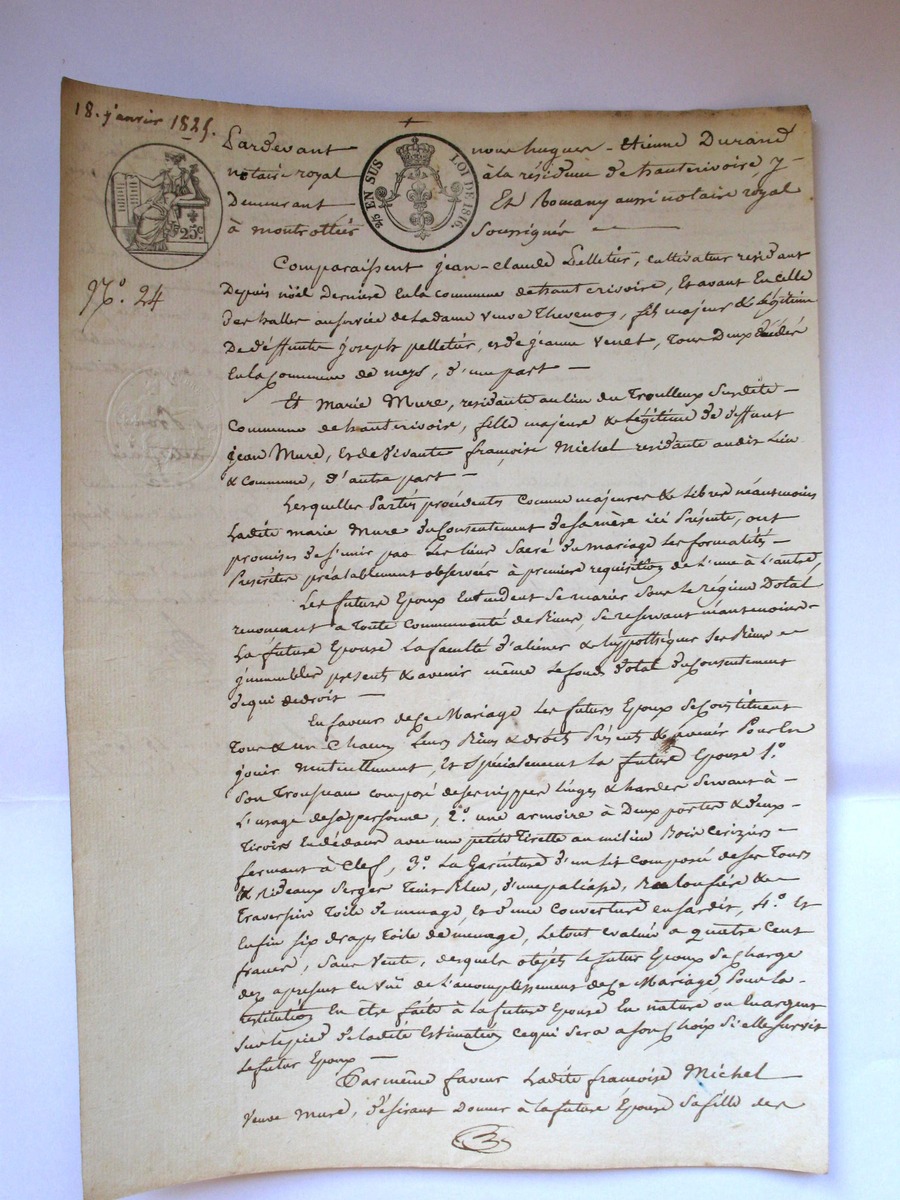 18. janvier 1825.
Pardevant nous hugues-Etienne Durand
notaire royal à la résidence de hauterivoire, y
Demeurant Et Romany aussi notaire royal
à montrottier Soussignés
25 c.
2/5 EN SUS LOI DE 1816.
N°. 24
Comparaissent jean-claude Pelletier, cultivateur résidant
Depuis nöel dernière En la commune de hauterivoire, Et avant En celle
des halles au service de La dame veuve Thevenon, fils majeur & Légitime
De déffunts joseph pelletier, et de jeanne Venet, Tous Deux décédés
En la Commune de meys, d'une part —
Et Marie Mure, residante au lieu du Troulleux Susdite
Commune de hauterivoire, fille majeure & Légitime de déffunt
jean Mure, et de Vivante françoise Michel residante audit Lieu
& commune, d'autre part —
Lesquelles Parties procédents comme majeures & Libres néantmoins
Ladite marie Mure du Consentement de sa mère ici Présente, ont
promises de s'unir par Les liens Sacré du mariage Les formalités
Prescrites préalablement observées à première requisition de L'une à L'autre,
Les future Epoux Entendent Se marier Sous le régime Dotal
renoncent a Toute Communauté de Biens, Se réservant néantmoins
La future Epouse La faculté d'aliéner & hyppothéquer Ses Biens
jmmeubles présents & avenir même Le fonds dotal du Consentement
de qui de droit —
En faveur de Ce Mariage Les futurs Epoux Se Constituent
Tous & un Chacun Leurs Biens & droits Présents & avenir Pour En
jouir mutuellement, Et Spécialement La future Epouse 1°.
Son Trousseau composé de ses nippes Linges & hardes Servant à
L'usage de sa personne, 2°. une armoire à Deux portes & deux
Tiroirs En dedans avec une petite Tirette au milieu Bois Cerizier
fermant à Clef, 3°. La Garniture d'un Lit Composé de ses Tours
& rideaux Serges Teint Bleu, d'une paliasse,
Traversin Toile de menage, et d'une Couverture en sardis, 4°. Et
Enfin Six draps Toile de ménage, Le tout evalué a quattre Cent
francs, Sans Vente, desquels objets Le futur Epoux Se Charge
dez apresent En Vuë de L'accomplissement de Ce Mariage Pour La
restitution En être faite à La future Epouse En nature ou En argent
Sur le pied de La dite Estimation Ce qui Sera a son Choix Si elle Survit
Le futur Epoux —
Par même faveur Ladite francoise Michel
Veuve Mure, désirant Donner à La future Epouse Sa fille des